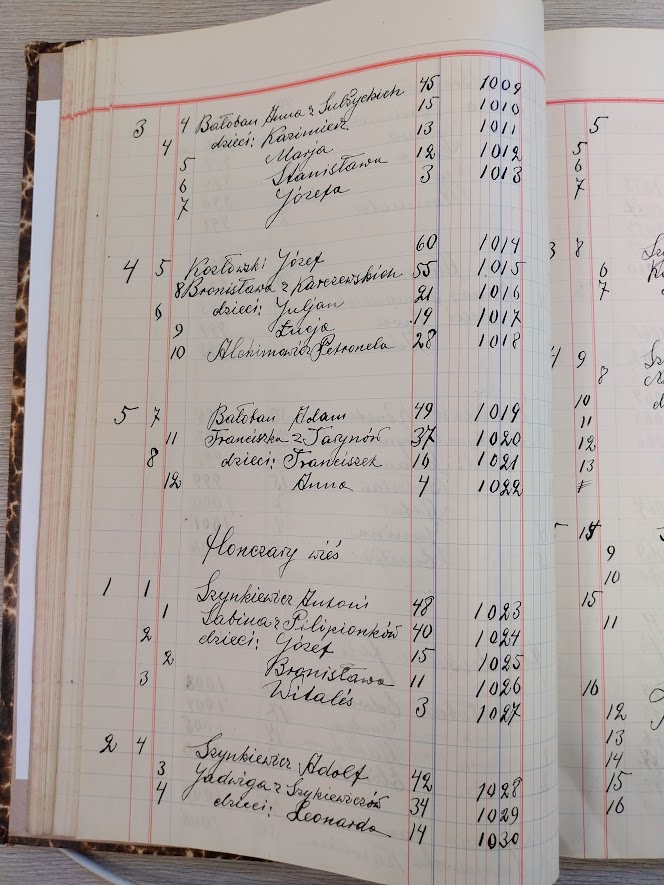 3 4 Bałoban Anna z Subżyckich 45 1009
4 dzieci: Kazimierz 15 1010
5 Marja 13 1011
6 Stanisława 12 1012
7 Józefa 3 1013
4 5 Kozłowski Józef 60 1014
8 Bronisława z Karczewskich 55 1015
6 dzieci: Juljan 21 1016
9 Łucja 19 1017
10 Alchimowicz Petronela 28 1018
5 7 Bałoban Adam 49 1019
11 Franciszka z Tarynów 37 1020
8 dzieci: Franciszek 16 1021
12 Anna 4 1022
Honczary wieś
1 1 Szynkiewicz Antoni 48 1023
1 Sabina z Pilipionków 40 1024
2 dzieci: Józef 15 1025
2 Bronisława 11 1026
3 Witalis 3 1027
2 4 Szynkiewicz Adolf 42 1028
3 Jadwiga z Szykiewiczów 34 1029
4 dzieci: Leonarda 14 1030
5
5
6
7
3 8
6
7
4 9
8
10
11
12
13
14
9
10
15
11
16
12
13
14
15
16